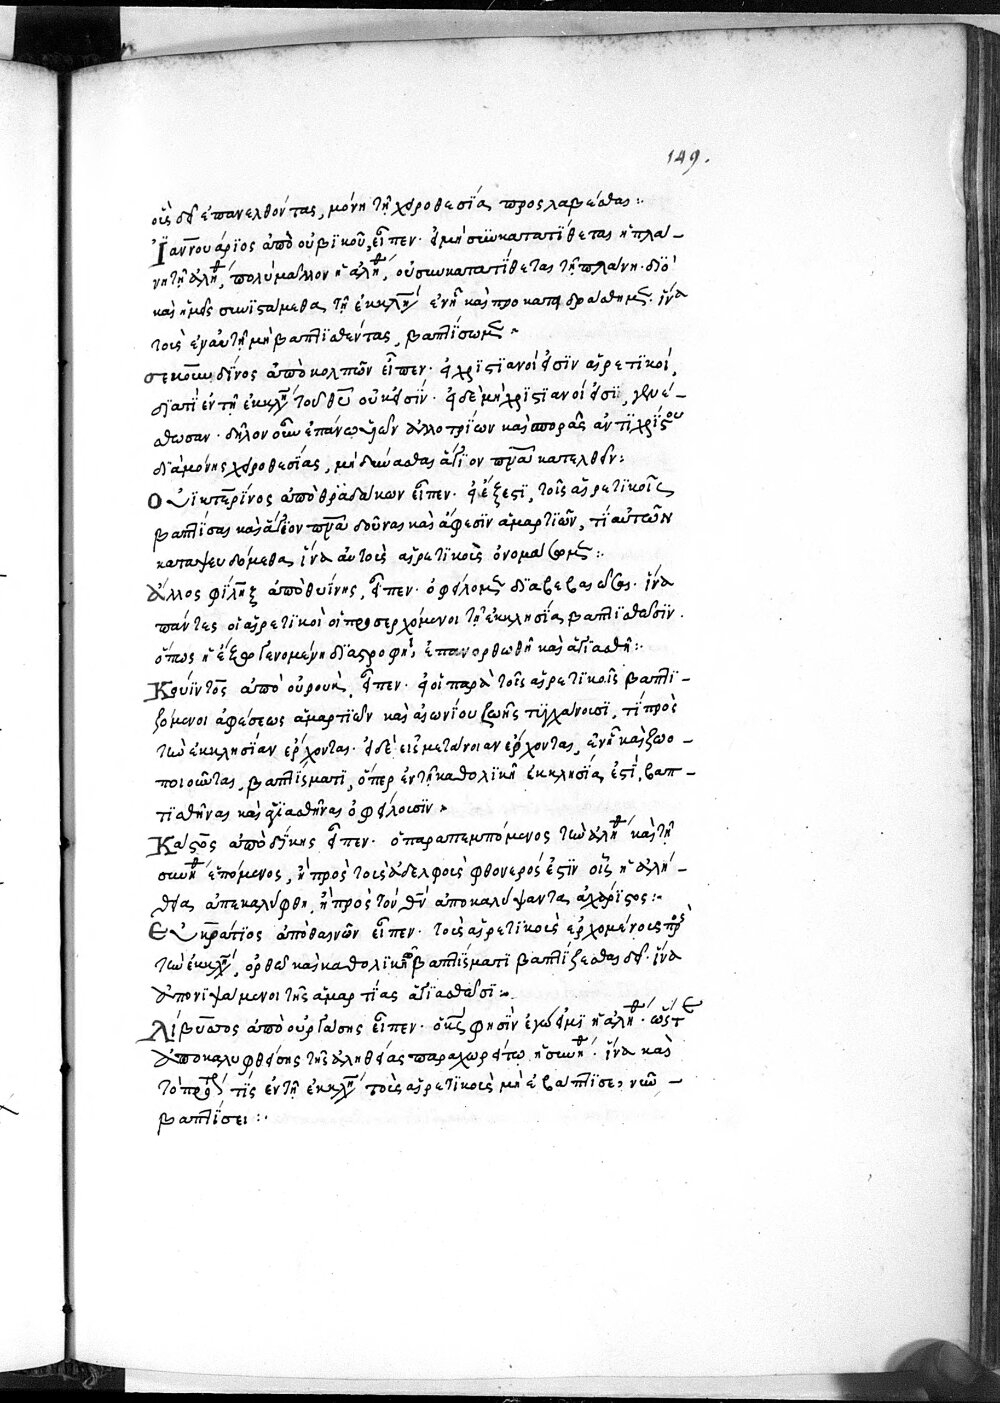 149.
οἷς δὲ ἐπανελθόντας, μόνῃ τῇ χειροθεσίᾳ προσλαβέσθαι:
Ἰαννουάριος ἀπὸ οὐβικοῦ, εἶπεν· εἰ μὴ συγκατατίθεται ἡ πλά-
νη τῇ ἀλη^θ, πολὺ μᾶλλον ἡ ἀλη^θ, οὐ συγκατατίθεται τῇ πλάνῃ· διὸ
καὶ ἡμεῖς συνιστάμεθα τῇ ἐκκλη, ἐν ᾗ καὶ προκαθεδραι ἵνα
τοὺς ἐν αὐτῇ μὴ βαπτισθέντας, βαπτίσωμεν
σεκουνδῖνος ἀπὸ κολπῶν εἶπεν· εἰ χριστιανοί εἰσϊν αἱρετικοί,
διατί ἐν τῇ ἐκκλη τοῦ θῦ οὐκ εἰσίν· εἰ δὲ μὴ χριστιανοί εἰσϊ, γενέ-
σθωσαν· δῆλον οὖν ἐπάνω ἀλλοτρίων καὶ σπορᾶς ἀντιχρίστου
διὰ μόνης χειροθεσίας, μὴ δύνασθαι ἅγιον πνα κατελθεῖν:
Οὐικτερῖνος ἀπὸ θραδάκων εἶπεν· εἰ ἔξεστϊ, τοῖς αἱρετικοῖς
βαπτίσαι καὶ ἅγϊον πνα δοῦναι καὶ ἄφεσϊν ἁμαρτιῶν, τί αὐτῶν
καταψευδόμεθα, ἵνα αὐτοὺς αἱρετικοὺς ὀνομάζωμεν:
Ἄλλος φίληξ ἀπὸ θυίνης, εἶπεν· ὀφείλομεν ἵνα
πάντες οἱ αἱρετικοὶ οἱ προσερχόμενοι τῇ ἐκκλησίᾳ βαπτισθῶσϊν.
ὅπως ἡ ἔξω γενομένη διαστροφή, ἐπανορθωθῇ καὶ ἁγιασθῇ:
Κουίντος ἀπὸ οὐρουκ, εἶπεν· εἰ οἱ παρὰ τοῖς αἱρετικοῖς βαπτι-
ζόμενοι ἀφέσεως ἁμαρτιῶν καὶ αἰωνίου ζωῆς τυγχάνουσϊ, τί πρὸς
τὴν ἐκκλησίαν ἔρχονται· εἰ δὲ εἰς μετάνοιαν ἔρχονται, ἐν ᾗ καὶ ζωο-
ποιοῦνται, βαπτίσματι, ὅπερ ἐν τῇ καθολικῇ ἐκκλησίᾳ ἐστί, βαπ-
τισθῆναι καὶ ἁγιασθῆναι ὀφείλουσϊν
Κάστος ἀπὸ σίκης εἶπεν· ὁ παραπεμπόμενος τὴν ἀλη^θ καὶ τῇ
συνη^θ ἑπόμενος, ἢ πρὸς τοὺς ἀδελφοὺς φθονερός ἐστϊν οἷς ἡ ἀλή-
θεια ἀπεκαλύφθη, ἢ πρὸς τὸν θν ἀποκαλύψαντα ἀχάριστος:
Εὐκράτιος ἀπὸ θαινῶν εἶπεν· τοὺς αἱρετικοὺς ἐρχομένους πρὸς
τὴν ἐκκλη, ὀρθῷ καὶ καθολικῷ βαπτίσματι βαπτίζεσθαι δεῖ· ἵνα
ἀπονιψάμενοι τῆς ἁμαρτίας ἁγιασθῶσϊ:
Λίβυανος ἀπὸ οὐργάσης εἶπεν· ὁ κς φησϊν ἐγώ εἰμι ἡ ἀλη^θ· ὥστε
ἀποκαλυφθείσης τῆς ἀληθείας παραχωρείτω ἡ συνη^θ· ἵνα καὶ
τὸ πρότερον τϊς ἐν τῇ ἐκκλη τοὺς αἱρετικοὺς μὴ ἐβάπτϊσε, νῦν
βαπτίσει: